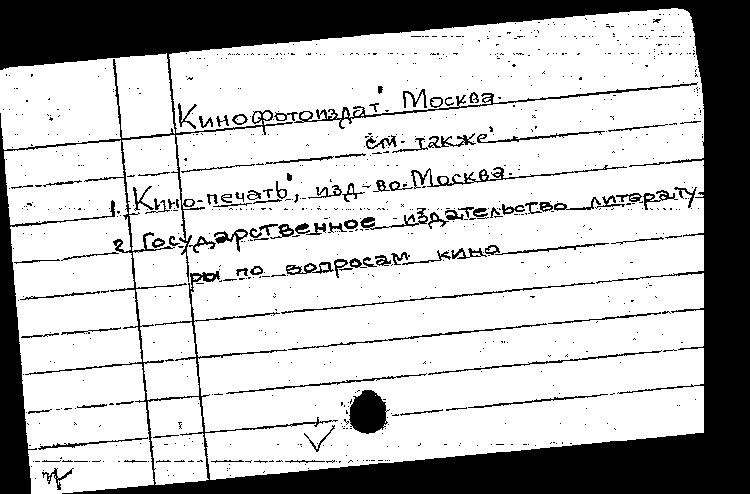 Кинофотоиздат. Москва.
см. также
1. "Кино-печать", изд-во. Москва.
2. Государственное издательство литерату-
ры по вопросам кино